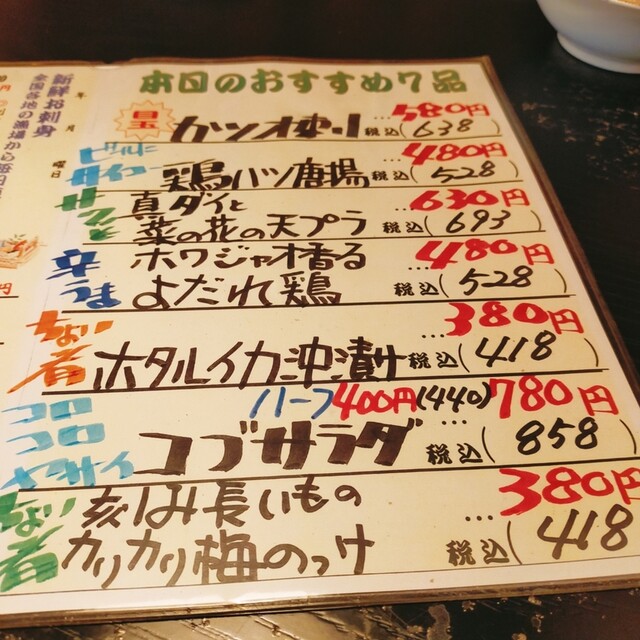 本日のおすすめ7品
目玉
カツオ刺し
...580円
税込(638)
鶏ハツ唐揚
...480円
税込(528)
真ダイと
菜の花の天プラ
...630円
税込(693)
辛
うま
ホワジャオ香る
よだれ鶏
...480円
税込(528)
ちょい
肴
ホタルイカ沖漬け
...380円
税込(418)
コロ
コロ
コブサラダ
ハーフ400円(440)
...780円
税込(858)
ちょい
肴
刻み長いもの
カリカリ梅のっけ
...380円
税込(418)
年
月
曜日
新鮮お刺身
全国各地の漁師から毎日
円